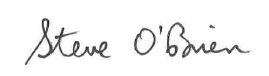 Steve O'Brien